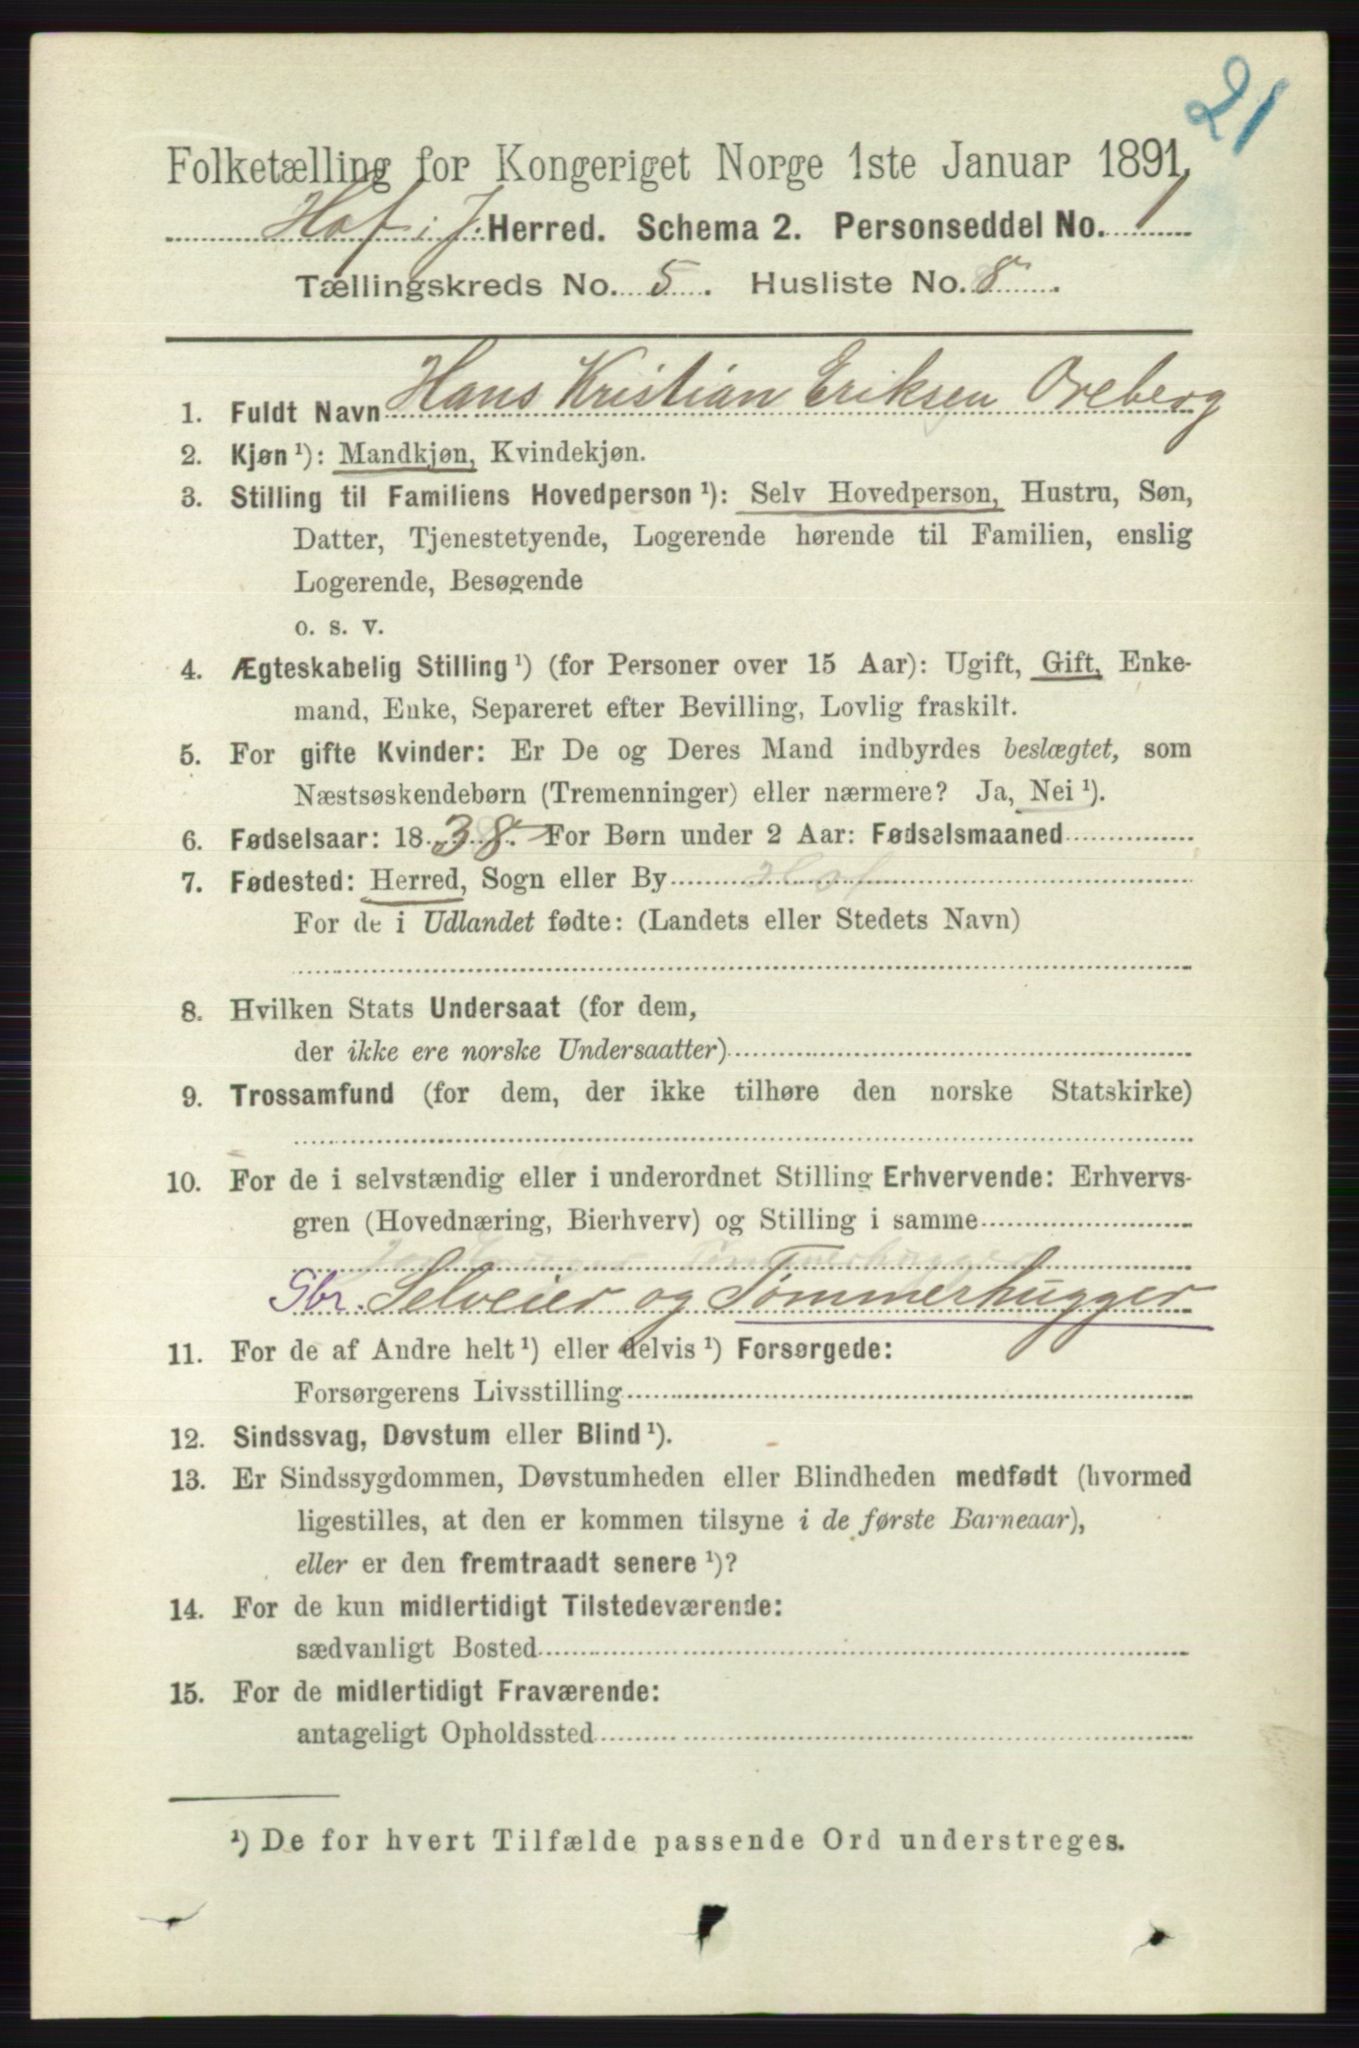 21
Folketælling for Kongeriget Norge 1ste Januar 1891.
Hof i J. Herred. Schema 2. Personseddel No. 1
Tællingskreds No. 5. Husliste No. 8.
1. Fuldt Navn Hans Kristian Eriksen Oreberg
2. Kjøn ¹): Mandkjøn, Kvindekjøn.
3. Stilling til Familiens Hovedperson ¹): Selv Hovedperson, Hustru, Søn,
Datter, Tjenestetyende, Logerende hørende til Familien, enslig
Logerende, Besøgende
o. s. v.
4. Ægteskabelig Stilling ¹) (for Personer over 15 Aar): Ugift, Gift, Enke-
mand, Enke, Separeret efter Bevilling, Lovlig fraskilt.
5. For gifte Kvinder: Er De og Deres Mand indbyrdes beslægtet, som
Næstsøskendebørn (Tremenninger) eller nærmere? Ja, Nei ¹).
6. Fødselsaar: 1838. For Børn under 2 Aar: Fødselsmaaned
7. Fødested: Herred, Sogn eller By Hof
For de i Udlandet fødte: (Landets eller Stedets Navn)
8. Hvilken Stats Undersaat (for dem,
der ikke ere norske Undersaatter)
9. Trossamfund (for dem, der ikke tilhøre den norske Statskirke)
10. For de i selvstændig eller i underordnet Stilling Erhvervende: Erhvervs-
gren (Hovednæring, Bierhverv) og Stilling i samme
Tømmerhugger
Gbr. Selveier og Tømmerhugger
11. For de af Andre helt ¹) eller delvis ¹) Forsørgede:
Forsørgerens Livsstilling
12. Sindssvag, Døvstum eller Blind ¹).
13. Er Sindssygdommen, Døvstumheden eller Blindheden medfødt (hvormed
ligestilles, at den er kommen tilsyne i de første Barneaar),
eller er den fremtraadt senere ¹)?
14. For de kun midlertidigt Tilstedeværende:
sædvanligt Bosted
15. For de midlertidigt Fraværende:
antageligt Opholdssted
¹) De for hvert Tilfælde passende Ord understreges.